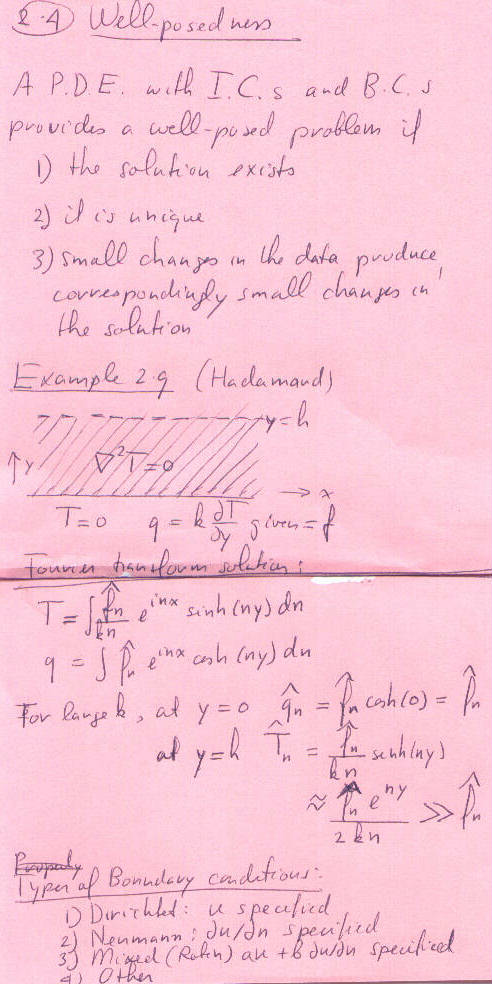 2.4 Well-posedness
A P.D.E. with I.C.s and B.C.s
provides a well-posed problem if
1) the solution exists
2) it is unique
3) small changes in the data produce
correspondingly small changes in
the solution
Example 2.9 (Hadamard)
y=h
↑y ∇²T=0
→ x
T=0 q = k ∂T/∂y given = f
Fourier transform solution:
T = ∫ f̂n/kn e^{inx} sinh(ny) dn
q = ∫ f̂n e^{inx} cosh(ny) dn
For large k, at y=0 q̂n = f̂n cosh(0) = f̂n
at y=h T̂n = f̂n/kn sinh(ny)
≈ f̂n e^{ny}/2kn ≫ f̂n
Types of Boundary conditions:
1) Dirichlet: u specified
2) Neumann: ∂u/∂n specified
3) Mixed (Robin) au + b ∂u/∂n specified
4) Other